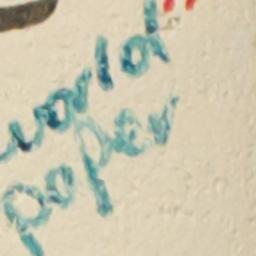 world"
paper